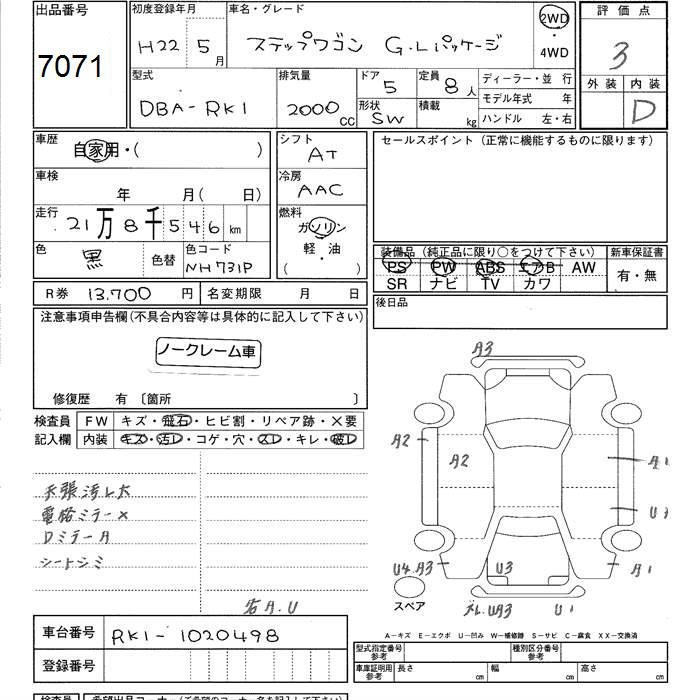 出品番号
7071
初度登録年月
H22 5月
車名・グレード
ステップワゴン G.Lパッケージ
2WD
4WD
評価点
3
外装 内装
D
型式
DBA-RK1
排気量
2000cc
ドア
5
形状
SW
定員
8人
積載
kg
ディーラー・並行
モデル年式 年
ハンドル 左・右
車歴
自家用・( )
シフト
AT
セールスポイント(正常に機能するものに限ります)
車検
年 月(日)
冷房
AAC
走行
21万8千546km
燃料
ガソリン
軽・油
( ・ )
色
黒
色替
色コード
NH731P
装備品(純正品に限り○をつけて下さい)
PS PW ABS エアB AW
SR ナビ TV カワ
新車保証書
有・無
R券 13.700円
名変期限 月 日
後日品
注意事項申告欄(不具合内容等は具体的に記入して下さい)
ノークレーム車
修復歴 有〔箇所 〕
検査員
記入欄
FW キズ・飛石・ヒビ割・リペア跡・×要
内装 キズ・汚レ・コゲ・穴・スレ・キレ・破レ
天張汚レ大
電格ミラー×
Dミラー A
シートシミ
各A.U
A3
A2
A2
A1
U4.A3
U3
A1
U1
スペア
A-キズ E-エクボ U-凹み W-補修跡 S-サビ C-腐食 XX-交換済
車台番号
RK1-1020498
登録番号
型式指定番号
参考
種別区分番号
参考
車庫証明用
参考
長さ cm 幅 cm 高さ cm